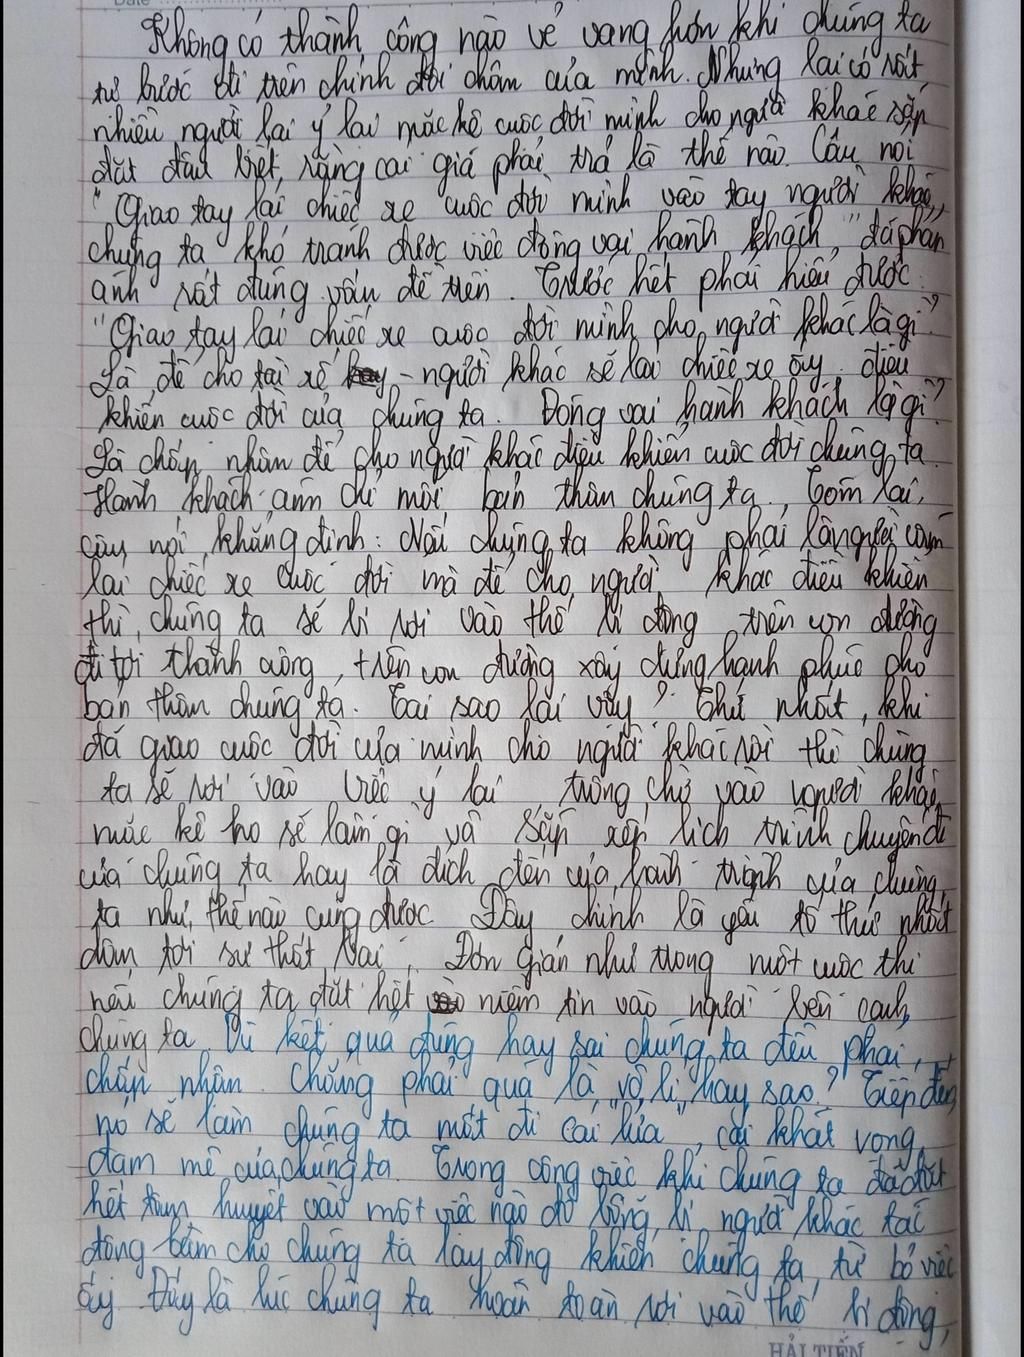 Date
Không có thành công nào vẻ vang hơn khi chúng ta
tự bước đi trên chính đôi chân của mình. Nhưng lại có rất
nhiều người lại ỷ lại mặc kệ cuộc đời mình cho người khác sắp
đặt đâu biết, rằng cái giá phải trả là thế nào. Câu nói
"Giao tay lái chiếc xe cuộc đời mình vào tay người khác,
chúng ta khó tránh được việc đóng vai hành khách," đã phản
ánh rất đúng vấn đề trên. Trước hết phải hiểu được:
"Giao tay lái chiếc xe cuộc đời mình cho người khác là gì"?
Là để cho tài xế - người khác sẽ lái chiếc xe ấy. điều
khiển cuộc đời của chúng ta. Đóng vai hành khách là gì?
Là chấp nhận để cho người khác điều khiển cuộc đời chúng ta.
Hành khách ám chỉ mỗi bản thân chúng ta. Tóm lại,
câu nói khẳng định: Nếu chúng ta không phải là người cầm
lái chiếc xe cuộc đời mà để cho người khác điều khiển
thì, chúng ta sẽ bị rơi vào thế bị động trên con đường
đi tới thành công, trên con đường xây dựng hạnh phúc cho
bản thân chúng ta. Tại sao lại vậy? Thứ nhất, khi
đã giao cuộc đời của mình cho người khác rồi thì chúng
ta sẽ rơi vào việc ỷ lại trông chờ vào người khác,
mặc kệ họ sẽ làm gì và sắp xếp lịch trình chuyến đi
của chúng ta hay là đích đến của hành trình của chúng
ta như thế nào cũng được. Đây chính là yếu tố thứ nhất
dẫn tới sự thất bại. Đơn giản như trong một cuộc thi
nếu chúng ta đặt hết niềm tin vào người bên cạnh,
chúng ta. Dù kết quả đúng hay sai chúng ta đều phải
chấp nhận. Chẳng phải quá là "vô lí" hay sao? Tiếp đến,
nó sẽ làm chúng ta mất đi cái lửa, cái khát vọng,
đam mê của chúng ta. Trong công việc khi chúng ta đã đặt
hết tâm huyết vào một việc nào đó bỗng bị người khác tác
động làm cho chúng ta lay động khiến chúng ta từ bỏ việc
ấy. Đấy là lúc chúng ta hoàn toàn rơi vào thế bị động,
HẢI TIẾN